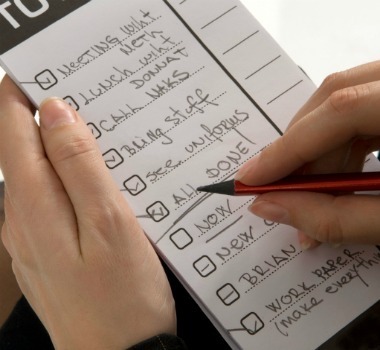 TO
MEETING wiht
Neth
LUNCH wiht
DONNAT
CALL NAKS
Bring stuff
see uniforms
All DONE!
NOW
NEW
BRIAN
WORK PAPER
(make everythin